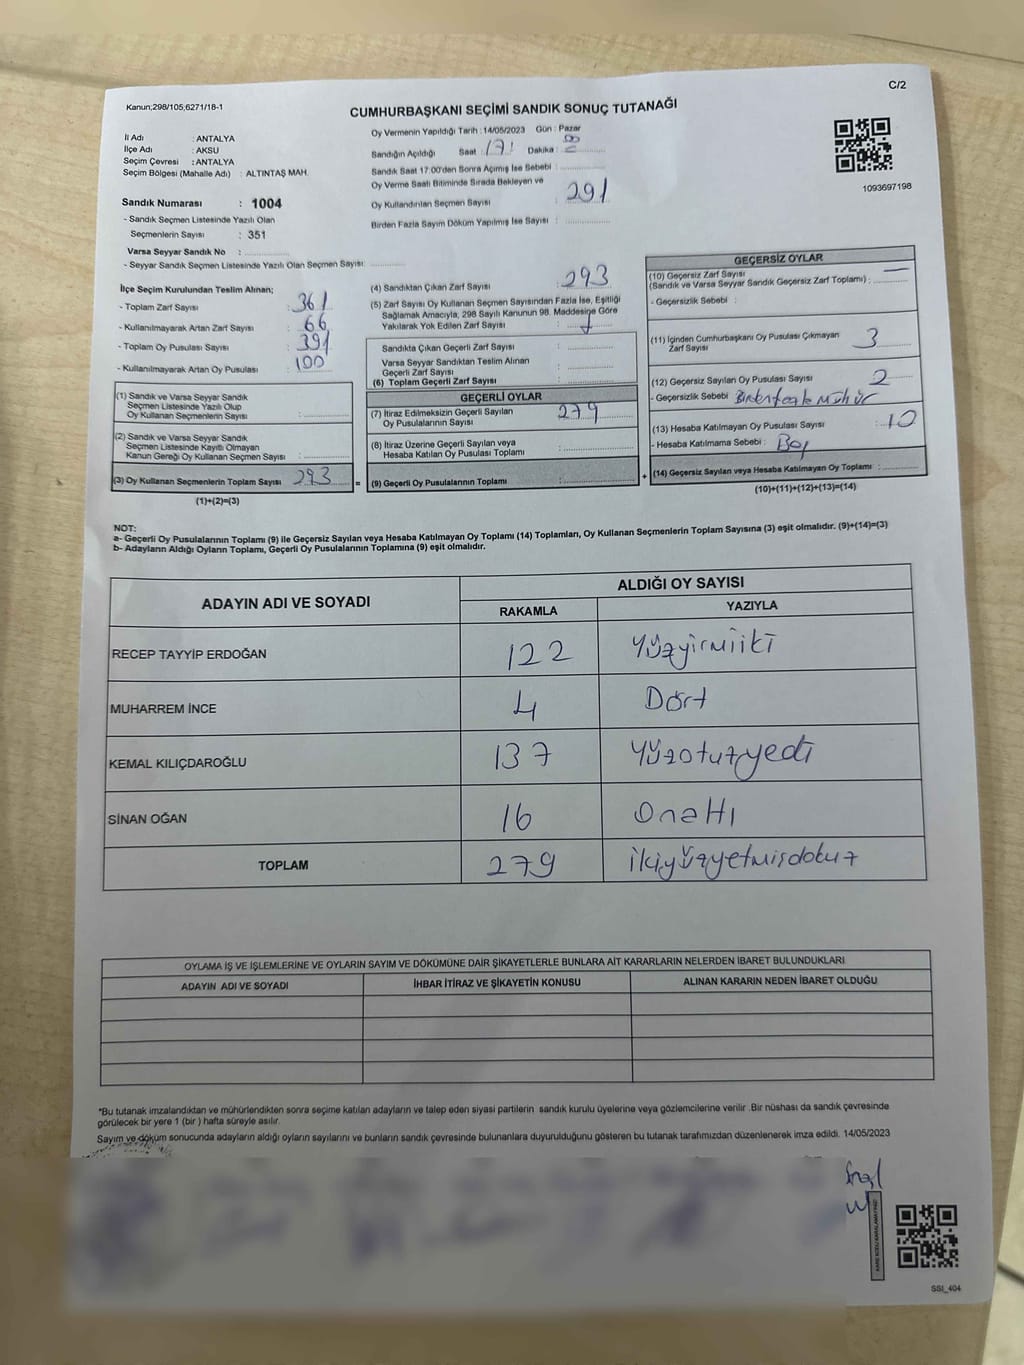 C/2
Kanun;298/105;6271/18-1
CUMHURBAŞKANI SEÇİMİ SANDIK SONUÇ TUTANAĞI
İl Adı : ANTALYA
İlçe Adı : AKSU
Seçim Çevresi : ANTALYA
Seçim Bölgesi (Mahalle Adı) : ALTINTAŞ MAH.
Sandık Numarası : 1004
- Sandık Seçmen Listesinde Yazılı Olan
Seçmenlerin Sayısı : 351
Varsa Seyyar Sandık No :
- Seyyar Sandık Seçmen Listesinde Yazılı Olan Seçmen Sayısı:
Oy Vermenin Yapıldığı Tarih : 14/05/2023 Gün : Pazar
Sandığın Açıldığı Saat : 17 Dakika :
Sandık Saat 17:00'den Sonra Açımış İse Sebebi :
Oy Verme Saati Bitiminde Sırada Bekleyen ve
Oy Kullandırılan Seçmen Sayısı : 291
Birden Fazla Sayım Döküm Yapılmış İse Sayısı :
1093697198
İlçe Seçim Kurulundan Teslim Alınan;
- Toplam Zarf Sayısı : 361
- Kullanılmayarak Artan Zarf Sayısı : 66
- Toplam Oy Pusulası Sayısı : 391
- Kullanılmayarak Artan Oy Pusulası : 100
(1) Sandık ve Varsa Seyyar Sandık
Seçmen Listesinde Yazılı Olup
Oy Kullanan Seçmenlerin Sayısı :
(2) Sandık ve Varsa Seyyar Sandık
Seçmen Listesinde Kayıtlı Olmayan
Kanun Gereği Oy Kullanan Seçmen Sayısı :
(3) Oy Kullanan Seçmenlerin Toplam Sayısı 293
(1)+(2)=(3)
(4) Sandıktan Çıkan Zarf Sayısı : 293
(5) Zarf Sayısı Oy Kullanan Seçmen Sayısından Fazla İse, Eşitliği
Sağlamak Amacıyla, 298 Sayılı Kanunun 98. Maddesine Göre
Yakılarak Yok Edilen Zarf Sayısı :
Sandıkta Çıkan Geçerli Zarf Sayısı :
Varsa Seyyar Sandıktan Teslim Alınan
Geçerli Zarf Sayısı :
(6) Toplam Geçerli Zarf Sayısı :
GEÇERLİ OYLAR
(7) İtiraz Edilmeksizin Geçerli Sayılan
Oy Pusulalarının Sayısı : 279
(8) İtiraz Üzerine Geçerli Sayılan veya
Hesaba Katılan Oy Pusulası Toplamı :
= (9) Geçerli Oy Pusulalarının Toplamı : +
GEÇERSİZ OYLAR
(10) Geçersiz Zarf Sayısı
(Sandık ve Varsa Seyyar Sandık Geçersiz Zarf Toplamı) : —
- Geçersizlik Sebebi :
(11) İçinden Cumhurbaşkanı Oy Pusulası Çıkmayan
Zarf Sayısı : 3
(12) Geçersiz Sayılan Oy Pusulası Sayısı : 2
- Geçersizlik Sebebi : Birden fazla mühür
(13) Hesaba Katılmayan Oy Pusulası Sayısı : 10
- Hesaba Katılmama Sebebi : Boş
(14) Geçersiz Sayılan veya Hesaba Katılmayan Oy Toplamı :
(10)+(11)+(12)+(13)=(14)
NOT:
a- Geçerli Oy Pusulalarının Toplamı (9) ile Geçersiz Sayılan veya Hesaba Katılmayan Oy Toplamı (14) Toplamları, Oy Kullanan Seçmenlerin Toplam Sayısına (3) eşit olmalıdır. (9)+(14)=(3)
b- Adayların Aldığı Oyların Toplamı, Geçerli Oy Pusulalarının Toplamına (9) eşit olmalıdır.
ADAYIN ADI VE SOYADI ALDIĞI OY SAYISI
RAKAMLA YAZIYLA
RECEP TAYYİP ERDOĞAN 122 Yüzyirmiiki
MUHARREM İNCE 4 Dört
KEMAL KILIÇDAROĞLU 137 Yüzotuzyedi
SİNAN OĞAN 16 Onaltı
TOPLAM 279 ikiyüzyetmişdokuz
OYLAMA İŞ VE İŞLEMLERİNE VE OYLARIN SAYIM VE DÖKÜMÜNE DAİR ŞİKAYETLERLE BUNLARA AİT KARARLARIN NELERDEN İBARET BULUNDUKLARI
ADAYIN ADI VE SOYADI İHBAR İTİRAZ VE ŞİKAYETİN KONUSU ALINAN KARARIN NEDEN İBARET OLDUĞU
*Bu tutanak imzalandıktan ve mühürlendikten sonra seçime katılan adayların ve talep eden siyasi partilerin sandık kurulu üyelerine veya gözlemcilerine verilir .Bir nüshası da sandık çevresinde
görülecek bir yere 1 (bir ) hafta süreyle asılır.
Sayım ve döküm sonucunda adayların aldığı oyların sayılarını ve bunların sandık çevresinde bulunanlara duyurulduğunu gösteren bu tutanak tarafımızdan düzenlenerek imza edildi. 14/05/2023
SSI_404